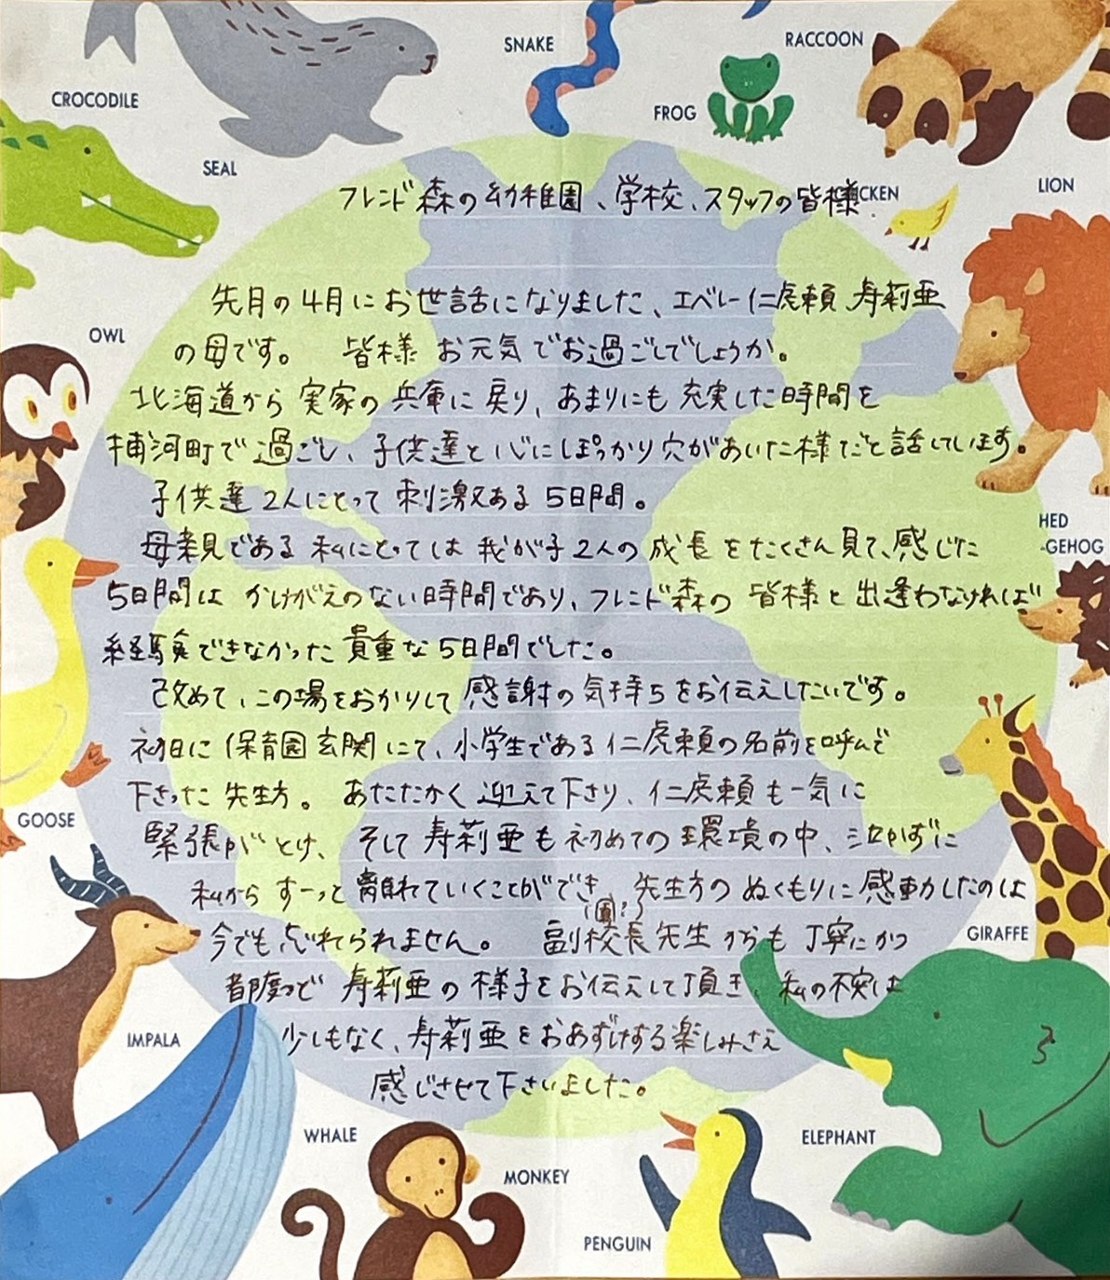 SNAKE
RACCOON
CROCODILE
FROG
SEAL
CKEN
LION
フレンド森の幼稚園、学校、スタッフの皆様
先月の4月にお世話になりました、エベレー仁虎頼 寿莉亜
OWL
の母です。 皆様 お元気でお過ごしでしょうか。
北海道から 実家の兵庫に戻り、あまりにも充実した時間を
浦河町で過ごし、子供達と心にぽっかり穴があいた様だと話しています。
子供達2人にとって刺激ある5日間。
HED
-GEHOG
母親である私にとっては我が子2人の成長をたくさん見て、感じた
5日間は かけがえのない時間であり、フレンド森の 皆様と出逢わなければ
経験できなかった貴重な5日間でした。
改めて、この場をおかりして感謝の気持ちをお伝えしたいです。
初日に保育園玄関にて、小学生である仁虎頼の名前を呼んで
下さった先生方。 あたたかく迎えて下さり、仁虎頼も一気に
GOOSE
緊張がとけ、そして寿莉亜も初めての環境の中、泣かずに
私からすーっと離れていくことができ、先生方のぬくもりに感動したのは
(園?)
今でも忘れられません。 副校長先生からも丁寧にかつ
GIRAFFE
都度つど 寿莉亜の様子をお伝えして頂き、私の不安は
IMPALA
少しもなく、寿莉亜をおあずけする楽しみさえ
感じさせて下さいました。
WHALE
ELEPHANT
MONKEY
PENGUIN